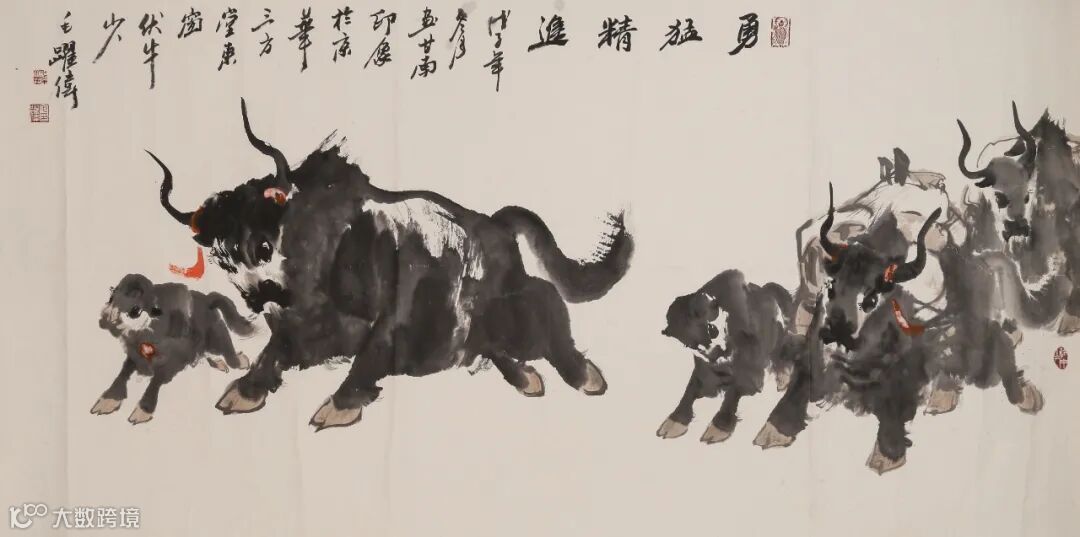 勇猛精進
戊子年
冬月
画甘南
印象
於京
華
三方
堂東
窗
伏牛
山人
躍
大数跨境